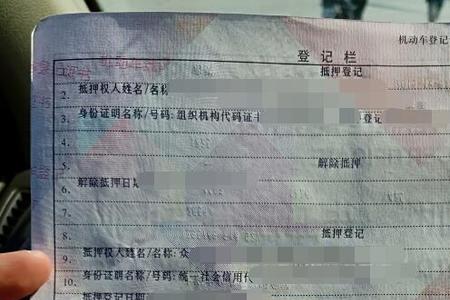 机动车登记
登记栏
1. 抵押登记
2. 抵押权人姓名/名称
3. 身份证明名称/号码: 组织机构代码证 登记
4.
5. 解除抵押
6. 解除抵押日期
7.
8. 抵押登记
9. 抵押权人姓名/名称: 众
10. 身份证明名称/号码: 统一社会信用代
抵押登记日期